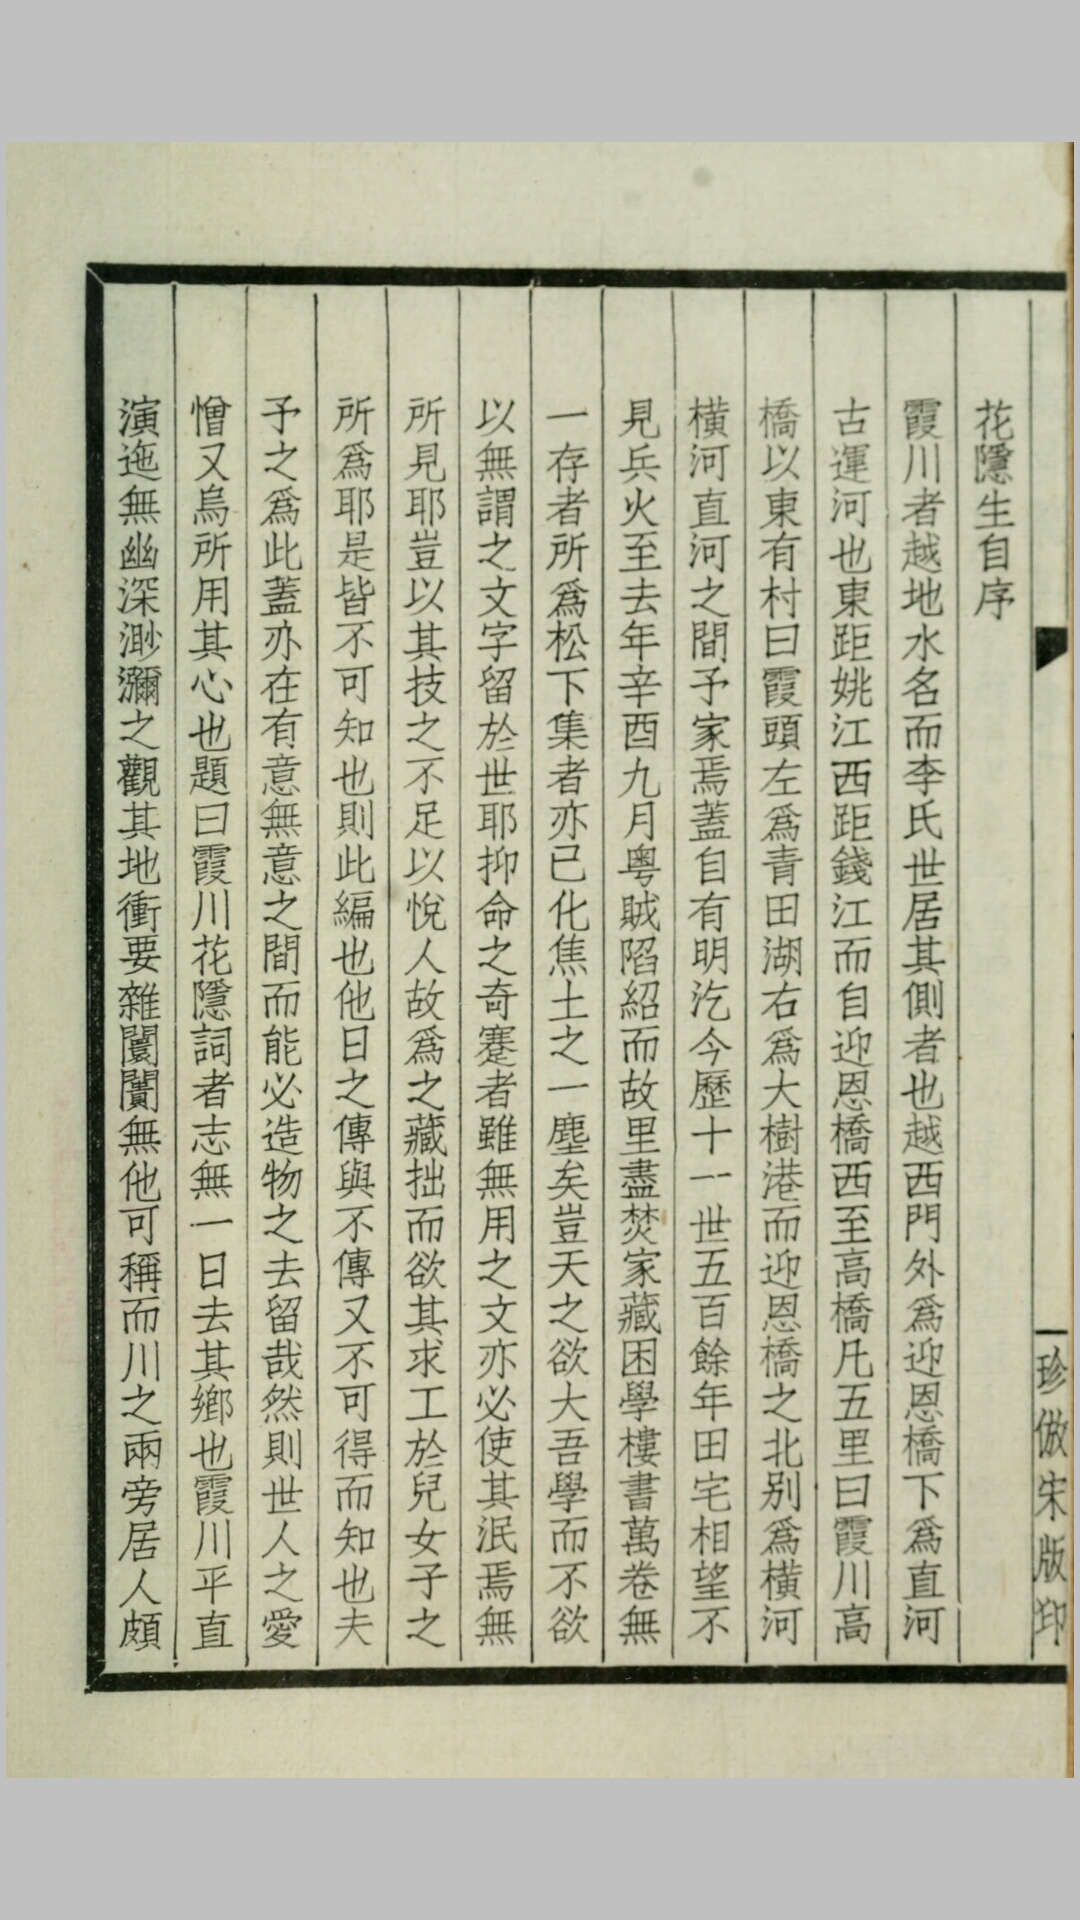 花隱生自序
霞川者越地水名而李氏世居其側者也越西門外爲迎恩橋下爲直河
古運河也東距姚江西距錢江而自迎恩橋西至高橋凡五里曰霞川高
橋以東有村曰霞頭左爲青田湖右爲大樹港而迎恩橋之北別爲橫河
橫河直河之間予家焉蓋自有明汔今歷十一世五百餘年田宅相望不
見兵火至去年辛酉九月粵賊陷紹而故里盡焚家藏困學樓書萬卷無
一存者所爲松下集者亦已化焦土之一塵矣豈天之欲大吾學而不欲
以無謂之文字留於世耶抑命之奇蹇者雖無用之文亦必使其泯焉無
所見耶豈以其技之不足以悅人故爲之藏拙而欲其求工於兒女子之
所爲耶是皆不可知也則此編也他日之傳與不傳又不可得而知也夫
予之爲此蓋亦在有意無意之間而能必造物之去留哉然則世人之愛
憎又烏所用其心也題曰霞川花隱詞者志無一日去其鄉也霞川平直
演迤無幽深渺瀰之觀其地衝要雜闤闠無他可稱而川之兩旁居人頗
珍倣宋版印